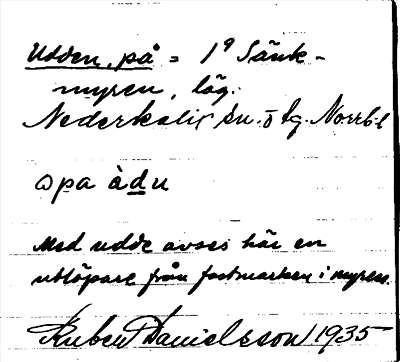 Udden, på = 1º Sänk-
myren, läg.
Nederkalix sn. o hg. Norrb. l
ɷpa àdu
Med udde avses här en
utlöpare från fastmarken i myren.
Ruben Danielsson 1935